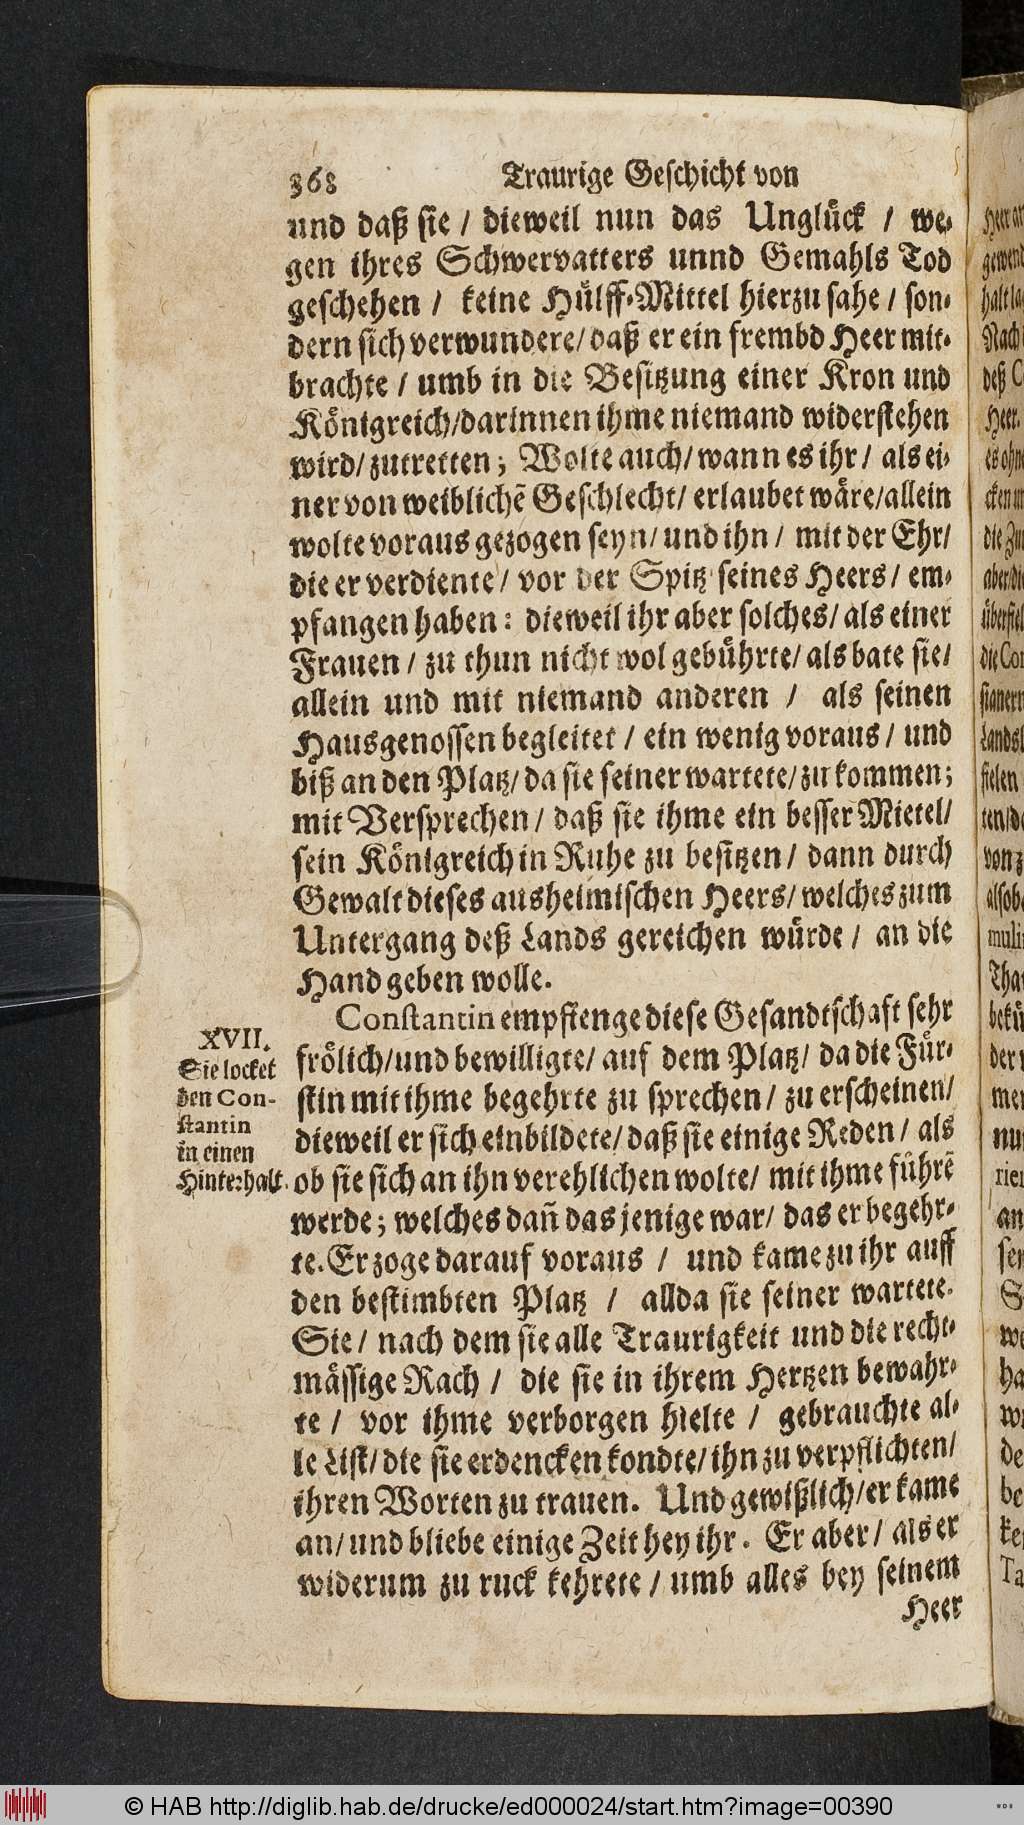 368 Traurige Geschicht von
und daß sie / dieweil nun das Unglück / we-
gen ihres Schwervatters unnd Gemahls Tod
geschehen / keine Hülff-Mittel hierzu sahe / son-
dern sich verwundere / daß er ein frembd Heer mit-
brachte / umb in die Besitzung einer Kron und
Königreich / darinnen ihme niemand widerstehen
wird / zutretten; Wolte auch / wann es ihr / als ei-
ner von weiblichẽ Geschlecht / erlaubet wäre / allein
wolte voraus gezogen seyn / und ihn / mit der Ehr /
die er verdiente / vor der Spitz seines Heers / em-
pfangen haben: dieweil ihr aber solches / als einer
Frauen / zu thun nicht wol gebührte / als bate sie /
allein und mit niemand anderen / als seinen
Hausgenossen begleitet / ein wenig voraus / und
biß an den Platz / da sie seiner wartete / zu kommen;
mit Versprechen / daß sie ihme ein besser Mietel /
sein Königreich in Ruhe zu besitzen / dann durch
Gewalt dieses ausheimischen Heers / welches zum
Untergang deß Lands gereichen würde / an die
Hand geben wolle.
Constantin empfienge diese Gesandtschaft sehr
XVII.
Sie locket
den Con-
stantin
in einen
Hinterhalt.
frölich / und bewilligte / auf dem Platz / da die Für-
stin mit ihme begehrte zu sprechen / zu erscheinen /
dieweil er sich einbildete / daß sie einige Reden / als
ob sie sich an ihn verehlichen wolte / mit ihme führẽ
werde; welches dañ das jenige war / das er begehr-
te. Er zoge darauf voraus / und kame zu ihr auff
den bestimbten Platz / allda sie seiner wartete.
Sie / nach dem sie alle Traurigkeit und die recht-
mässige Rach / die sie in ihrem Hertzen bewahr-
te / vor ihme verborgen hielte / gebrauchte al-
le List / die sie erdencken kondte / ihn zu verpflichten /
ihren Worten zu trauen. Und gewißlich / er kame
an / und bliebe einige Zeit hey ihr. Er aber / als er
widerum zu ruck kehrete / umb alles bey seinem
Heer
© HAB http://diglib.hab.de/drucke/ed000024/start.htm?image=00390